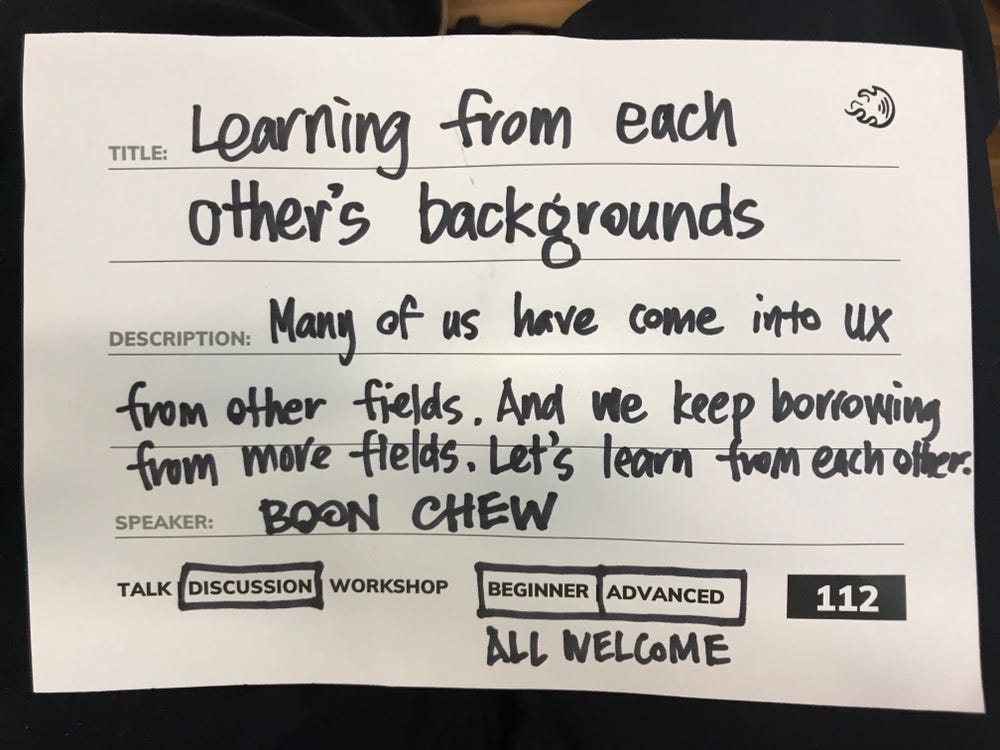 TITLE: Learning from each
other's backgrounds
DESCRIPTION: Many of us have come into UX
from other fields. And we keep borrowing
from more fields. Let's learn from each other.
SPEAKER: BOON CHEW
TALK DISCUSSION WORKSHOP BEGINNER ADVANCED 112
ALL WELCOME